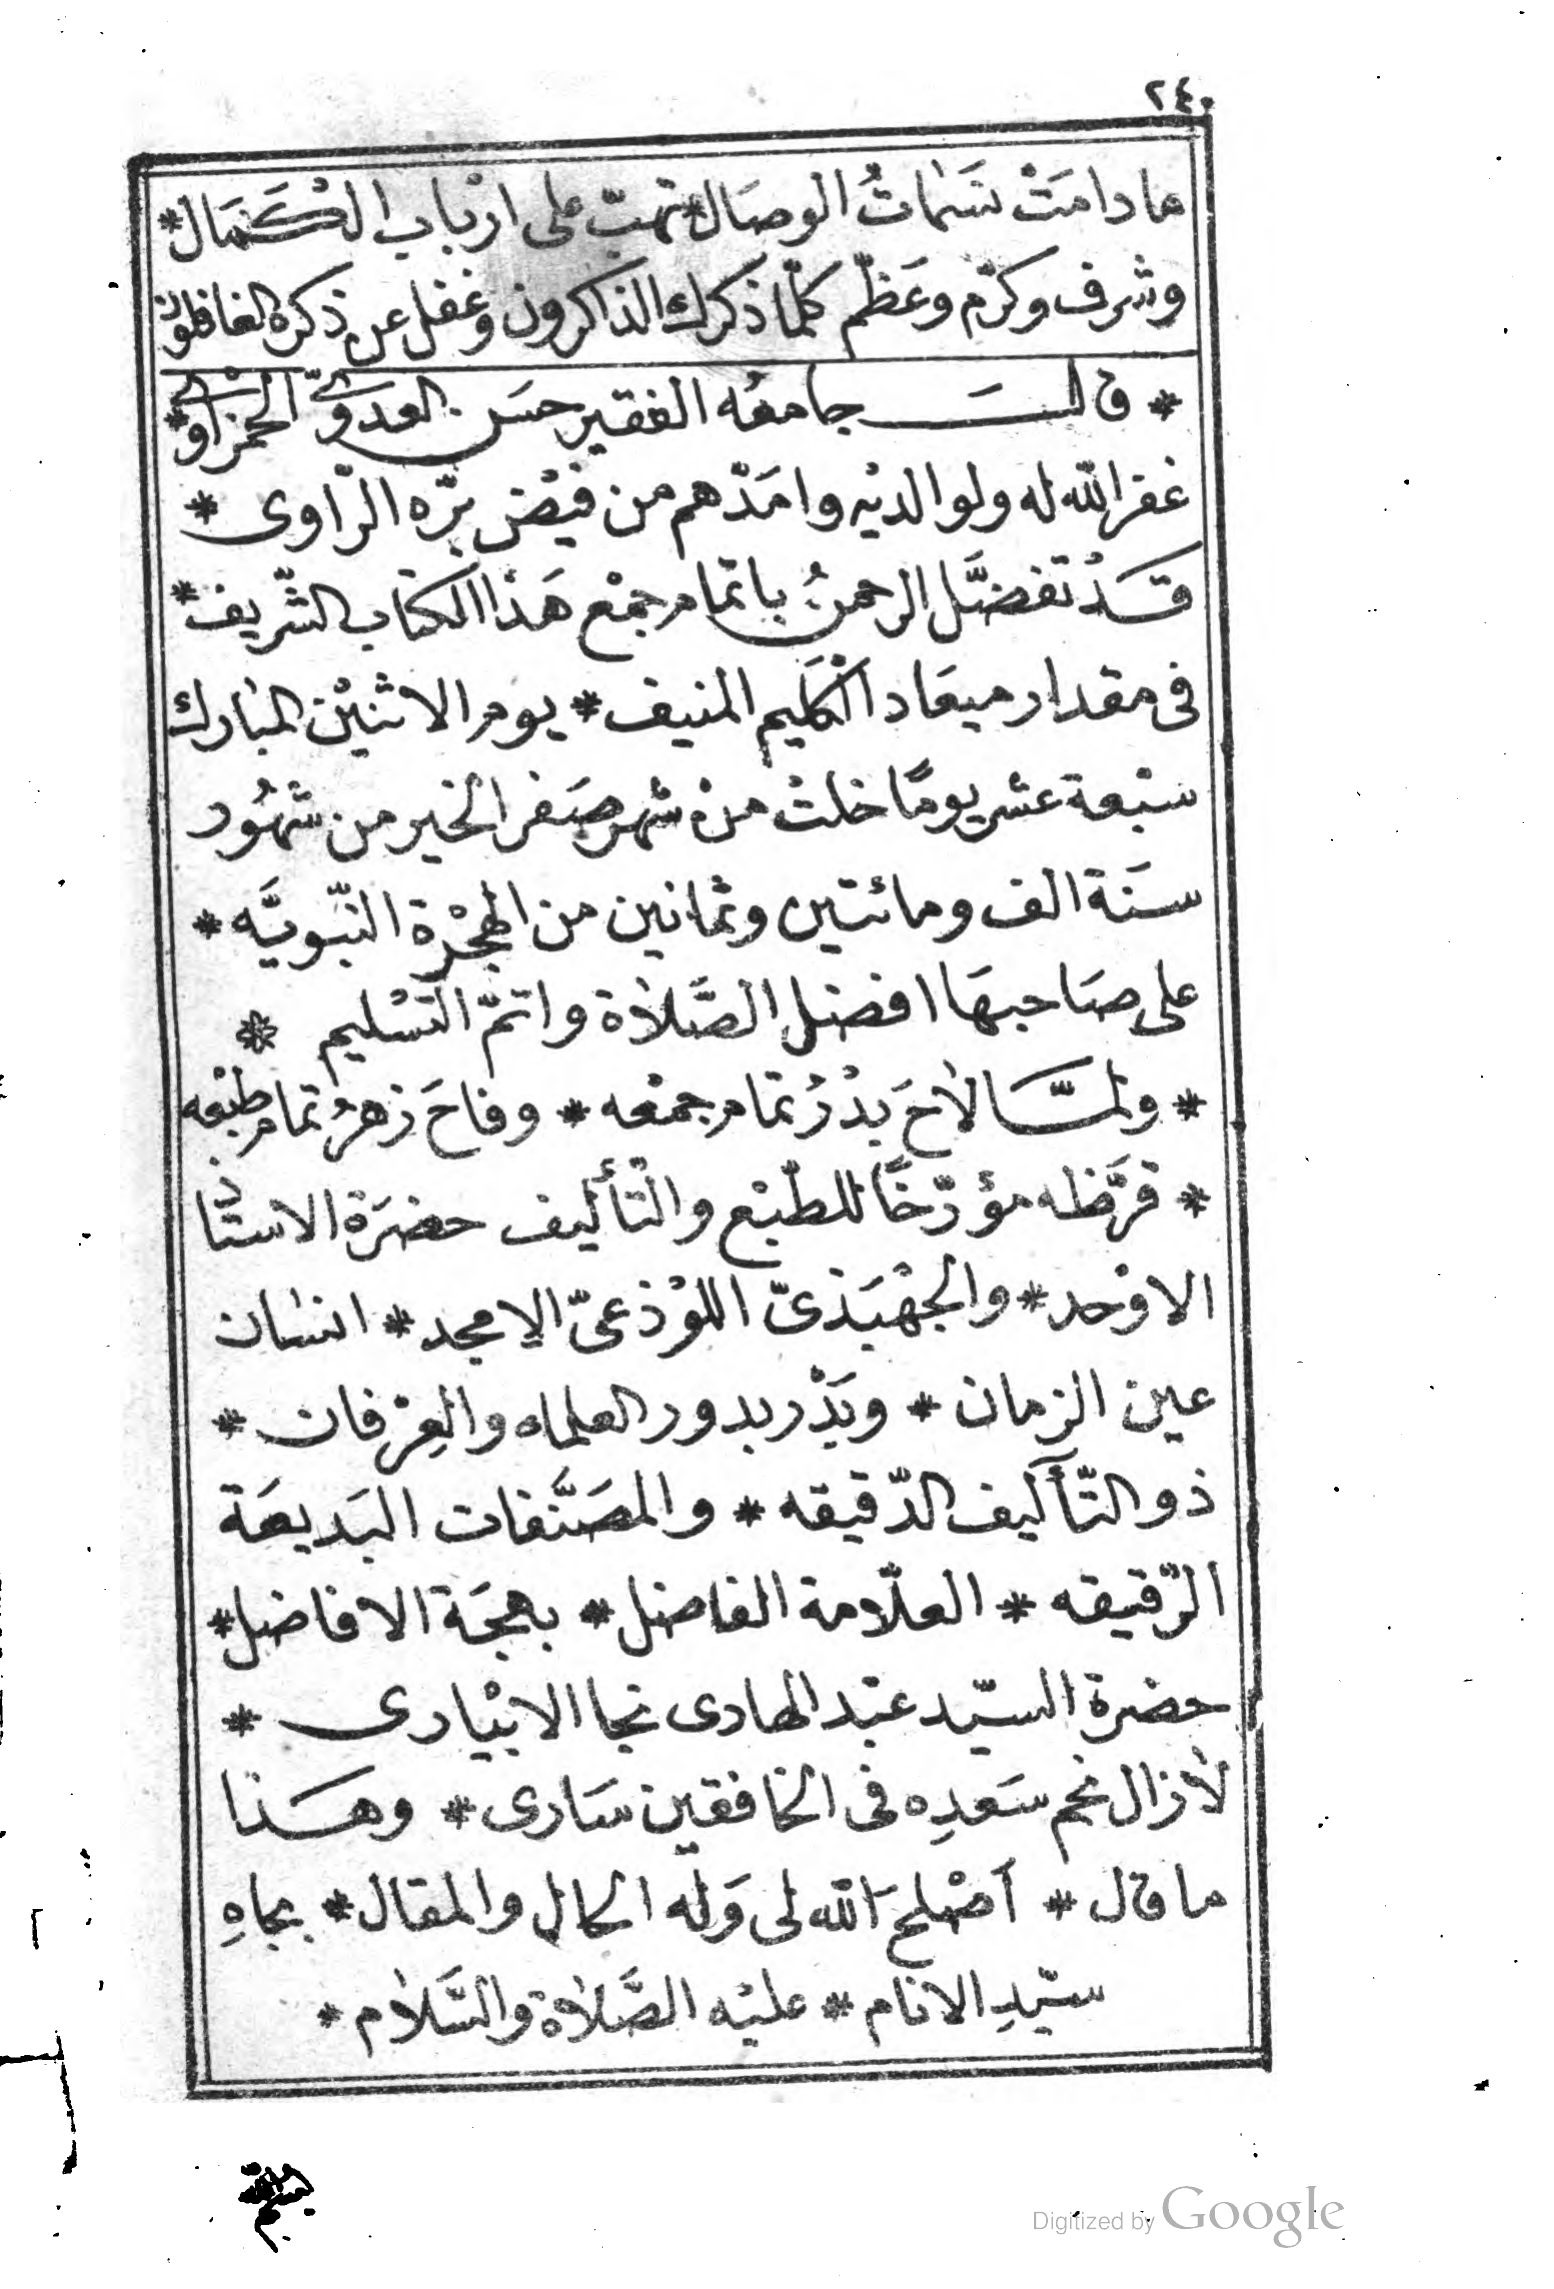 ٢٤٠
ما دامَتْ نسَماتُ الوصَال * تهبّ على ارْباب الْكَمَال *
وشرف وكرّم وعَظّم كلّما ذكرك الذاكرون وغفل عن ذكره الغافلون
* قالــَـــ جامعُه الفقير حسَن العدَوىّ الحمْزاوىّ *
غفر اللّه له ولوالديْه وامَدّهم من فيْض برّه الرّاوى *
قَدْ تفضَّل الرحمنُ باتمام جمْع هَذا الكتاب الشّريف *
فى مقدار ميعَاد الْكَليم المنيف * يوم الاثنيْن المبَارك
سبْعة عشر يومًا خلتْ منْ شهر صَفر الخير من شهُور
سنَة الف ومائتين وثمانين من الهجْرة النّبويَّه *
على صَاحبهَا افضل الصَّلاة واتمّ التّسْليم *
* ولمــَّـا لاحَ بدْرُ تمام جمْعه * وفاحَ زهرُ تمام طبْعه
* قرَّظه مؤرّخًا للطّبْع والتّأليف حضرَة الاستَاذ
الاوْحد * والجهْبَذىّ اللوْذعىّ الامجد * انسَان
عين الزمان * وبَدْر بدور العلماء والعِرْفان *
ذو التّآليف الدّقيقه * والمصَنَّفات البَديعَة
الرّقيقه * العلّامة الفاضل * بهجَة الافاضل *
حضرة السيّد عبْد الهادى نجا الابْيارى *
لازال نجم سَعدِه فى الخافقين سَارى * وهــَذا
ما قال * أصْلحَ اللّه لى وَله الحال والمقال * بجاهِ
سيّدِ الانام * عليْه الصَّلاة والسَّلام *
Digitized by Google